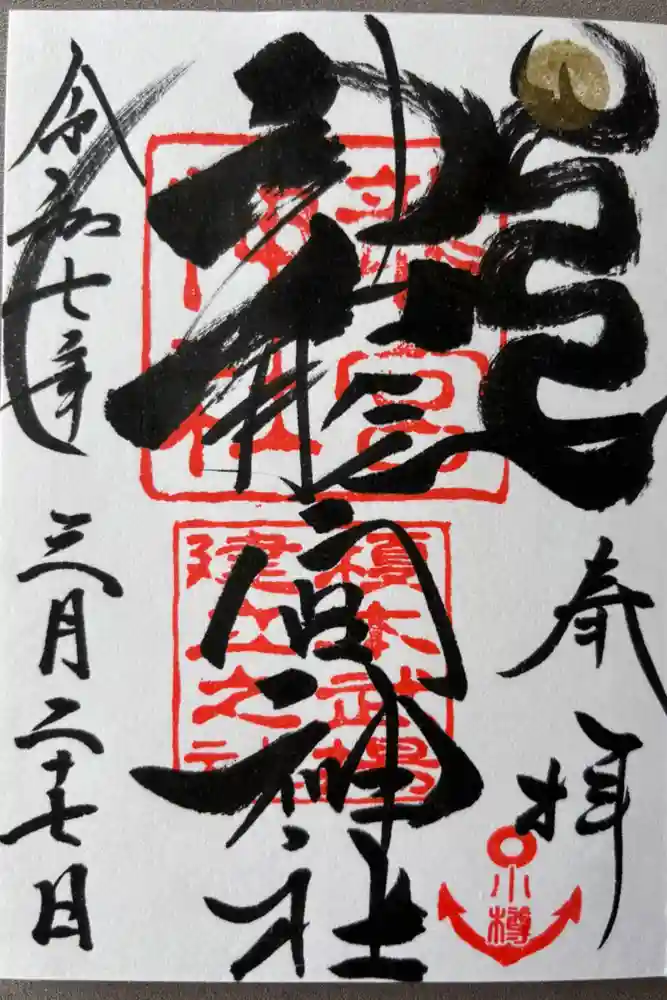 奉拝
龍宮神社
令和七年三月二十七日
龍宮
神社
榎本武揚
建立之社
小樽